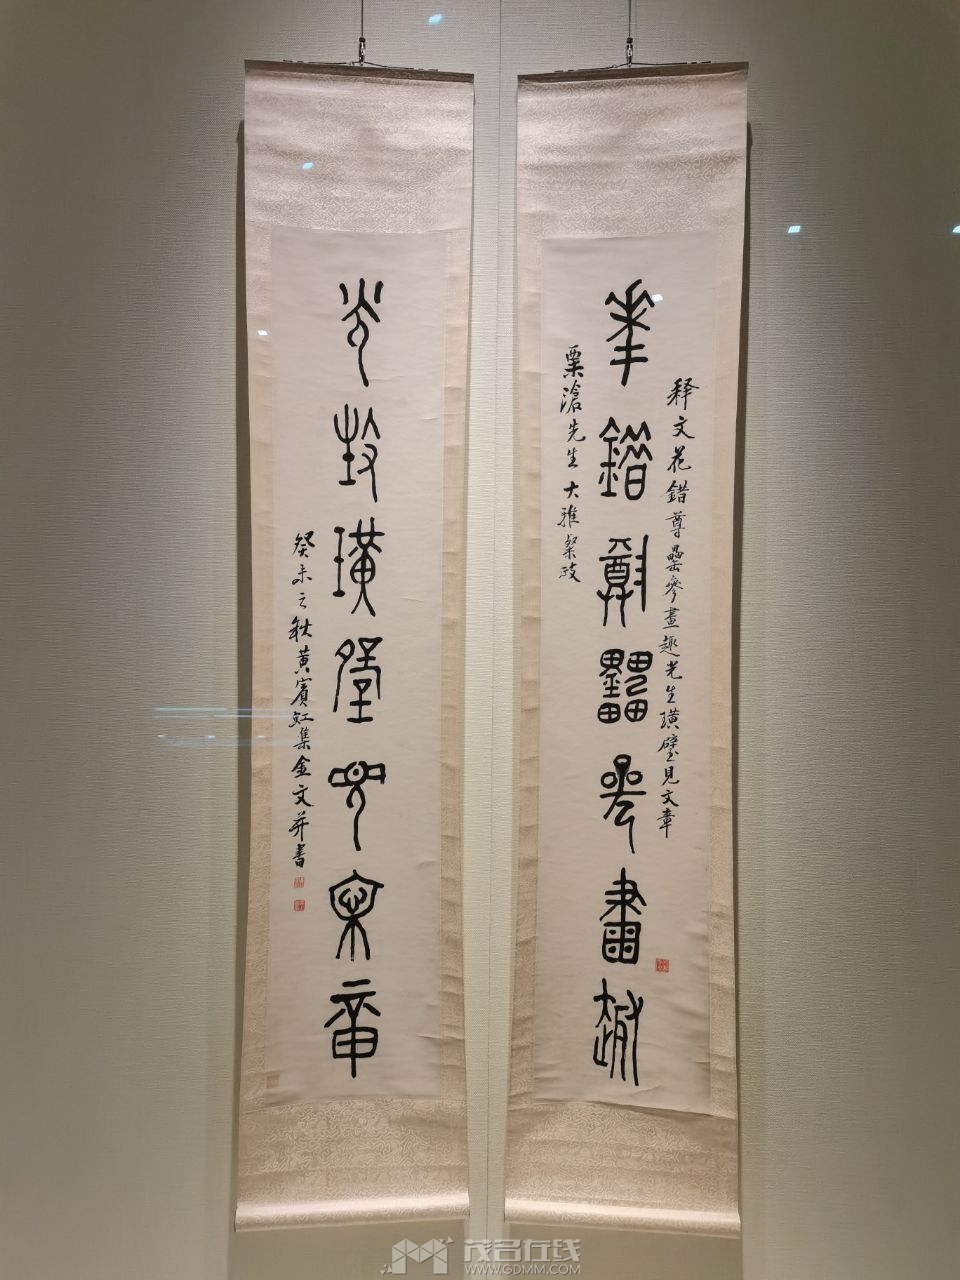 華錯尊罍參畫趣
釋文花錯尊罍參畫趣光生璜璧見文章
粟滄先生大雅粲政
光生璜璧見文章
癸未之秋黃賓虹集金文并書
茂名在线
WWW.GDMM.COM